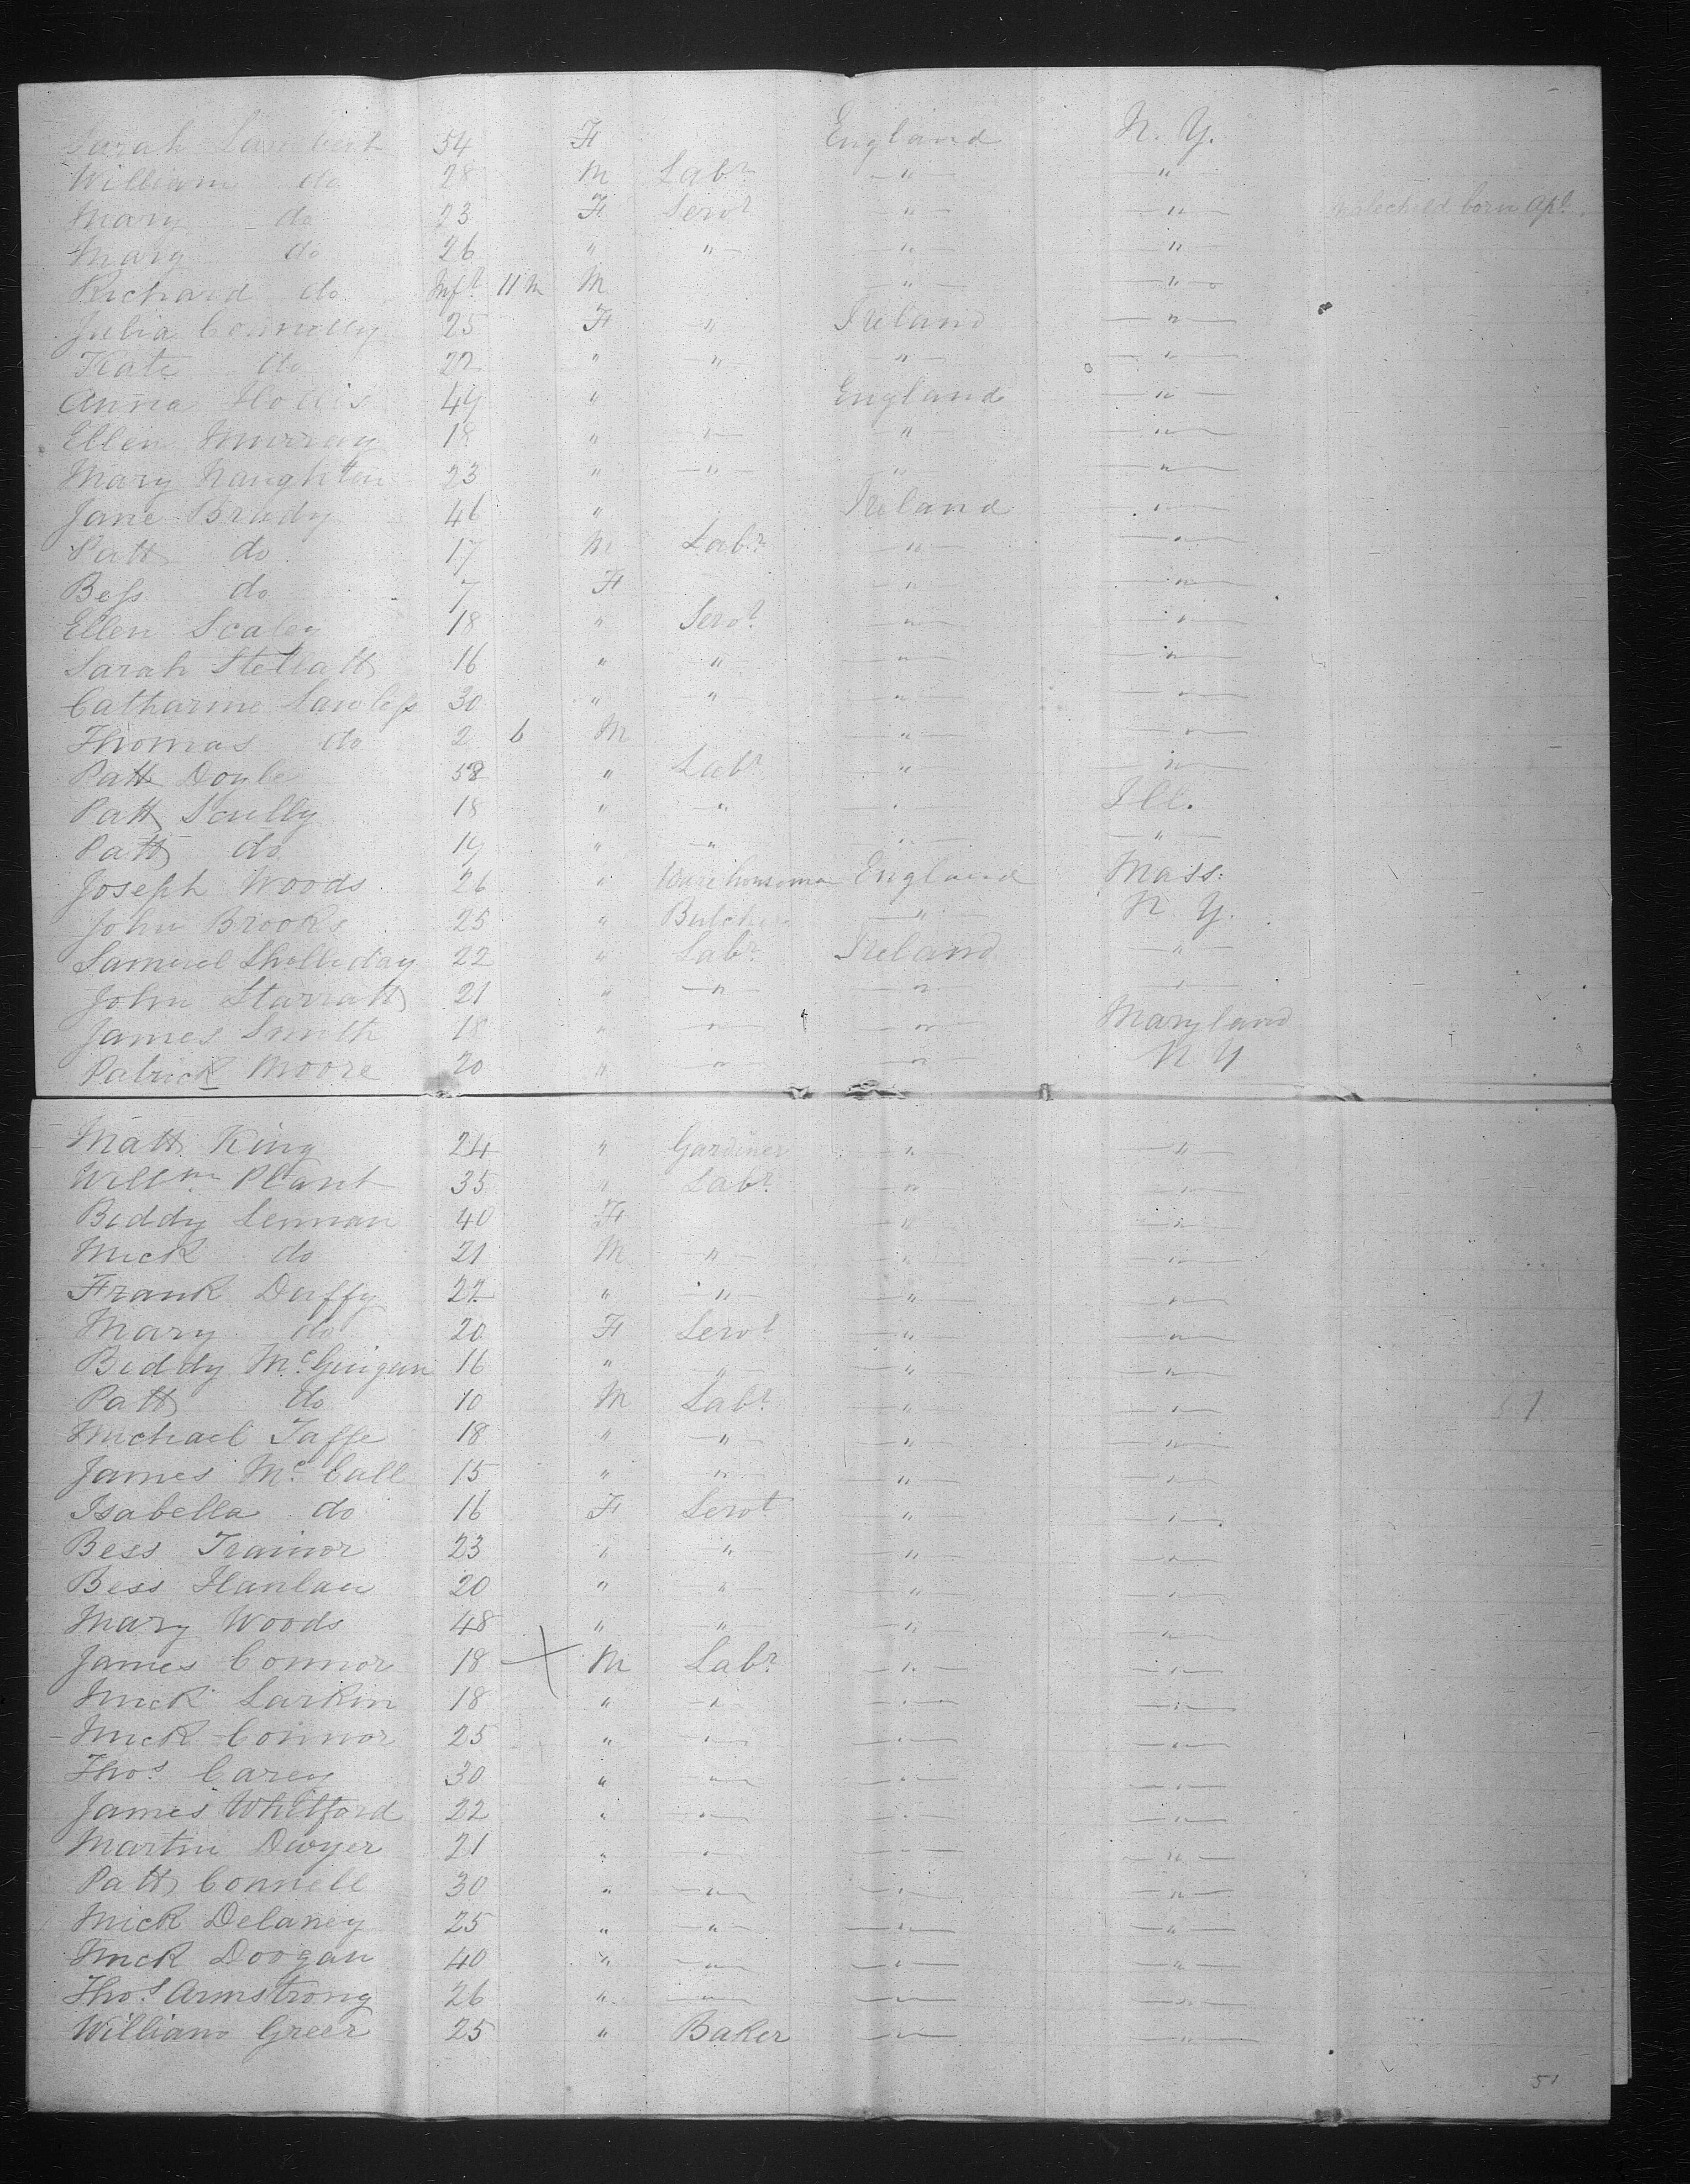 Sarah Lambert 54 F England N. Y.
William do 28 M Labr " "
Mary do 23 F Servt " " Male child born Apl.
Mary do 26 " " " "
Richard do Inft 11 m M " "
Julia Connolly 25 F " Ireland "
Kate do 22 " " " "
Anna Hollis 49 " England "
Ellen Murray 18 " " " "
Mary Naughton 23 " " " "
Jane Brady 46 " Ireland "
Patt do 17 M Labr " "
Bess do 7 F " "
Ellen Scaley 18 " Servt " "
Sarah Stellatt 16 " " " "
Catharine Lawless 30 " " " "
Thomas do 2 6 M " "
Patt Doyle 58 " Labr " "
Patt Scully 18 " " " Ill.
Patt do 19 " " " "
Joseph Woods 26 " Warehouseman England Mass.
John Brooks 25 " Butcher " N. Y.
Samuel Sholliday 22 " Labr Ireland "
John Starratt 21 " " " "
James Smith 18 " " " Maryland
Patrick Moore 20 " " " N Y
Matt King 24 " Gardiner " "
Willm Plant 35 " Labr " "
Biddy Lennan 40 F " "
Mick do 21 M " " "
Frank Duffy 22 " " " "
Mary do 20 F Servt " "
Biddy McGuigan 16 " " " "
Patt do 10 M Labr " "
Michael Taffe 18 " " " "
James McCall 15 " " " "
Isabella do 16 F Servt " "
Bess Trainor 23 " " " "
Bess Hanlan 20 " " " "
Mary Woods 48 " " " "
James Connor 18 M Labr " "
Mick Larkin 18 " " " "
Mick Connor 25 " " " "
Thos. Carey 30 " " " "
James Whitford 22 " " " "
Martin Dwyer 21 " " " "
Patt Connell 30 " " " "
Mick Delaney 25 " " " "
Mick Doogan 40 " " " "
Thos. Armstrong 26 " " " "
William Greer 25 " Baker " "
51